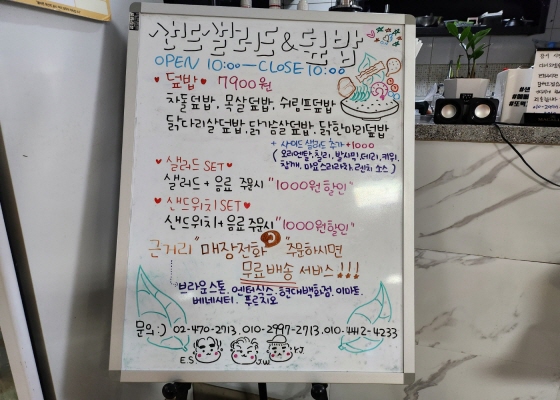 샌드샐러드&덮밥
OPEN 10:00—CLOSE 10:00
♥ 덮밥 ♥ 7900원
차돌덮밥, 목살덮밥, 쉬림프덮밥
닭다리살덮밥, 닭가슴살덮밥, 닭한마리덮밥
+ 사이드 샐러드 추가 +1000
(오리엔탈, 칠리, 발사믹, 데리, 키위,
참깨, 마요스리라차, 랜치 소스)
♥ 샐러드 SET ♥
샐러드 + 음료 주문시 "1000원 할인"
♥ 샌드위치 SET ♥
샌드위치 + 음료 주문시 "1000원할인"
근거리 "매장전화" 주문하시면
무료배송 서비스!!!
브라운스톤, 엔터식스, 현대백화점, 이마트,
베네시티, 푸르지오
문의 :) 02-470-2713, 010-2997-2713, 010-4412-4233
E.S J.W Y.J